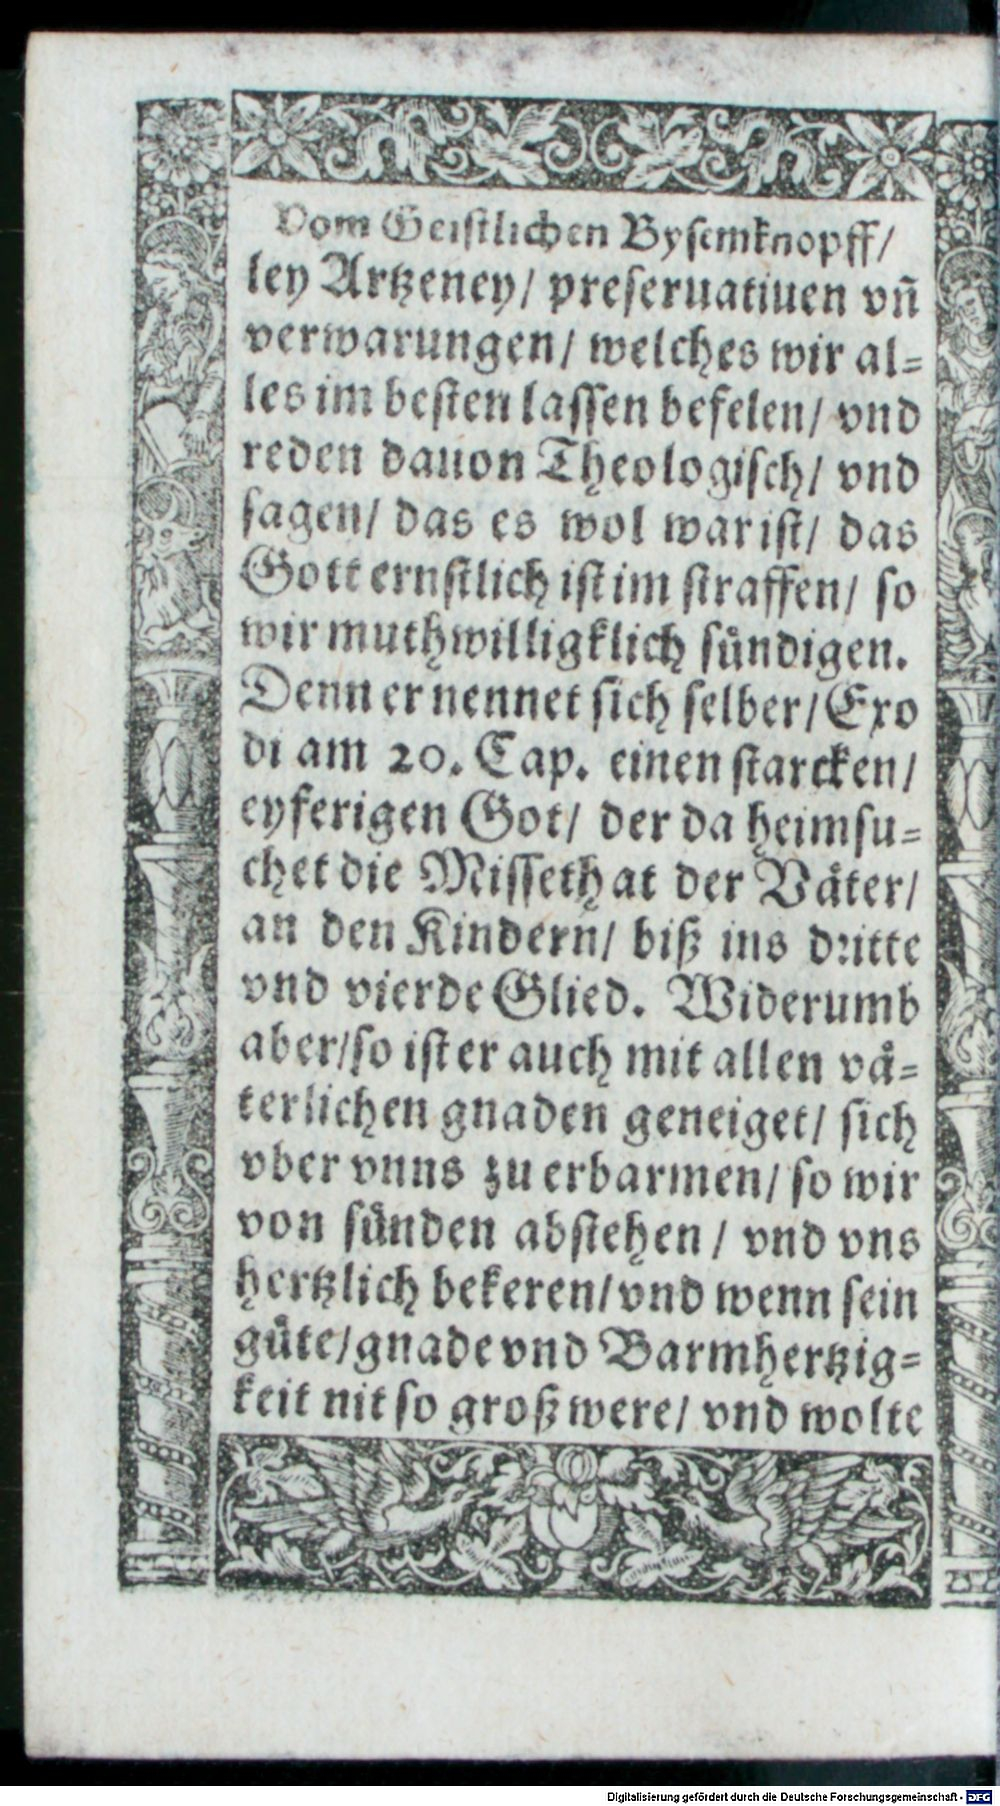 Vom Geistlichen Bysemknopff/
ley Artzeney/ preseruatiuen vn̄
verwarungen/ welches wir al=
les im besten lassen befelen/ vnd
reden dauon Theologisch/ vnd
sagen/ das es wol war ist/ das
Gott ernstlich ist im straffen/ so
wir muthwilligklich suͤndigen.
Denn er nennet sich selber/ Exo
di am 20. Cap. einen starcken/
eyferigen Got/ der da heimsu=
chet die Missethat der Vaͤter/
an den Kindern/ biß ins dritte
vnd vierde Glied. Widerumb
aber/so ist er auch mit allen vaͤ=
terlichen gnaden geneiget/ sich
vber vnns zu erbarmen/ so wir
von suͤnden abstehen/ vnd vns
hertzlich bekeren/ vnd wenn sein
guͤte/gnade vnd Barmhertzig=
keit nit so groß were/ vnd wolte
Digitalisierung gefördert durch die Deutsche Forschungsgemeinschaft - DFG